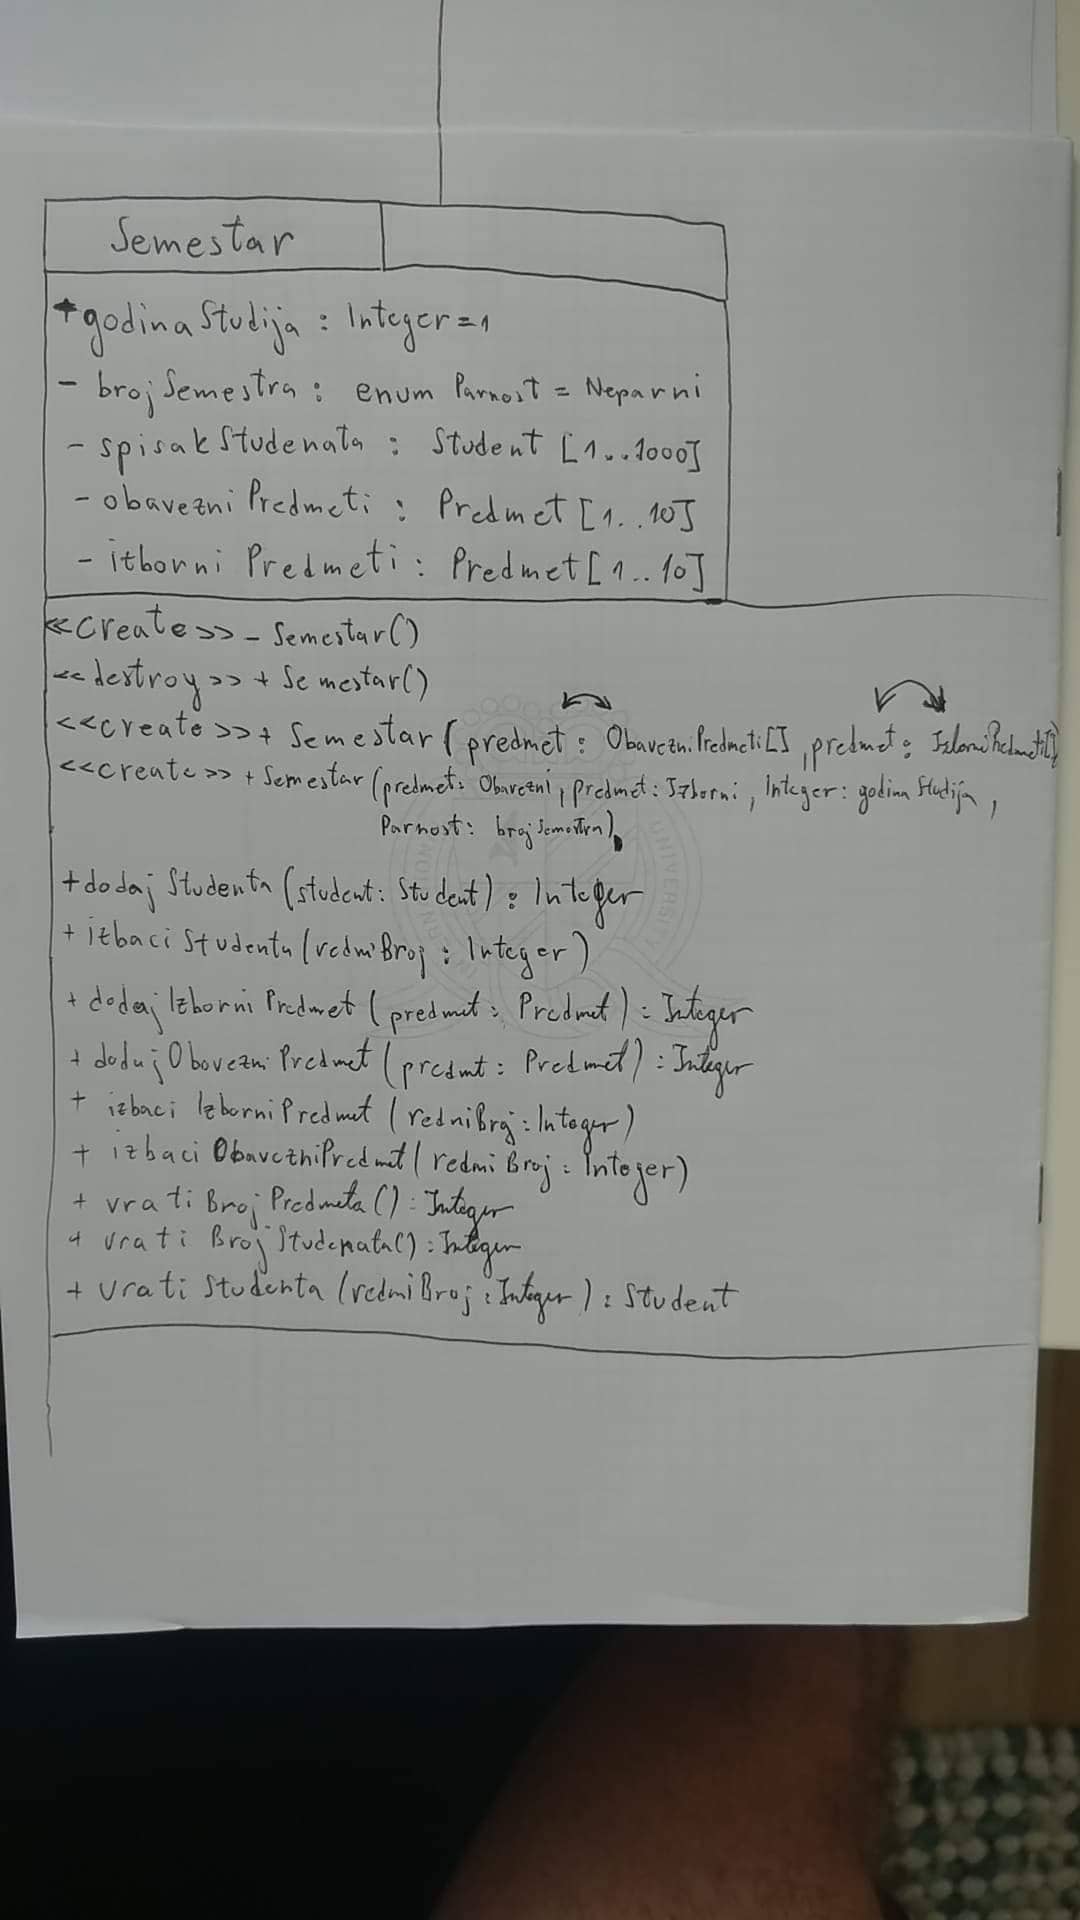 Semestar
+ godinaStudija : Integer = 1
- brojSemestra : enum Parnost = Neparni
- spisakStudenata : Student [1..1000]
- obavezniPredmeti : Predmet [1..10]
- izborniPredmeti : Predmet [1..10]
<<create>> - Semestar()
<<destroy>> + Semestar()
<<create>> + Semestar (predmet : ObavezniPredmeti[], predmet : IzborniPredmeti[])
<<create>> + Semestar (predmet: Obavezni, predmet: Izborni, Integer: godinaStudija,
Parnost: brojSemestra)
+ dodajStudenta (student: Student) : Integer
+ izbaciStudenta (redniBroj : Integer)
+ dodajIzborniPredmet (predmet : Predmet) : Integer
+ dodajObavezniPredmet (predmt : Predmet) : Integer
+ izbaciIzborniPredmet (redniBroj : Integer)
+ izbaciObavezniPredmet (redniBroj : Integer)
+ vratiBrojPredmeta() : Integer
+ vratiBrojStudenata() : Integer
+ vratiStudenta (redniBroj : Integer) : Student
UNIVERSITY